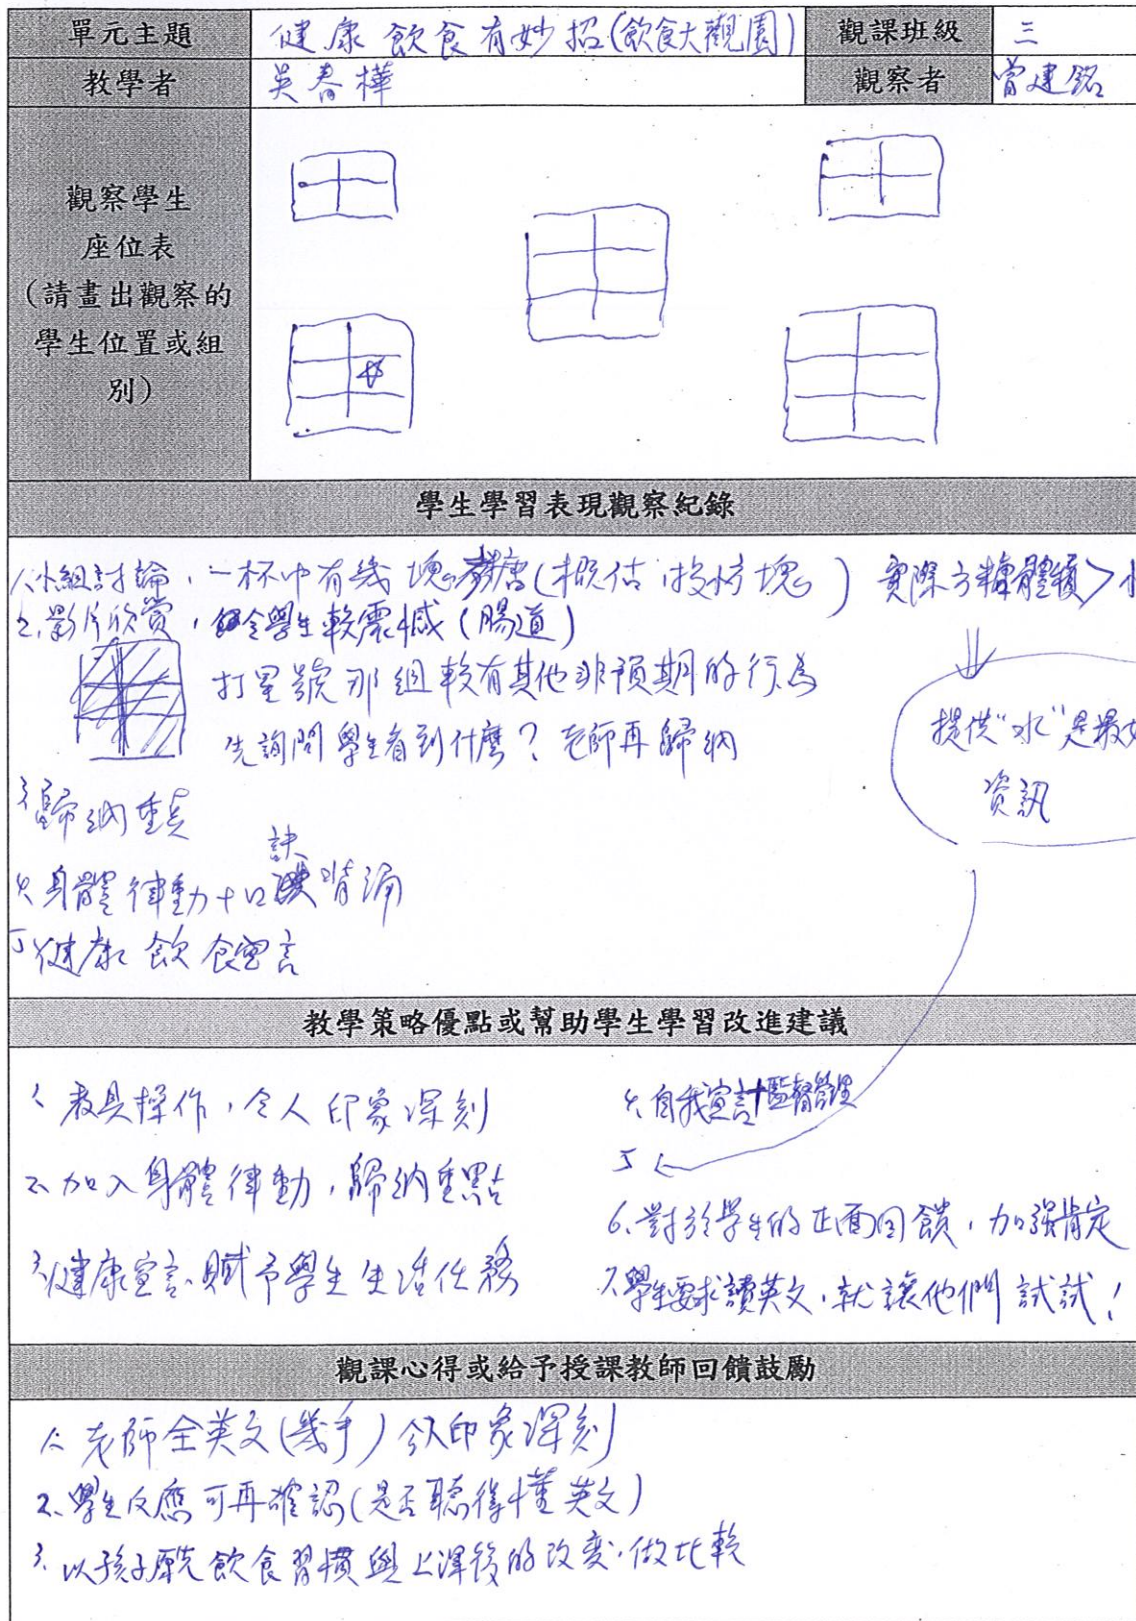 單元主題 健康飲食有妙招(飲食大觀園) 觀課班級 三
教學者 吳春樺 觀察者 曾建銘
觀察學生
座位表
(請畫出觀察的
學生位置或組
別)
學生學習表現觀察紀錄
1.小組討論,一杯中有幾塊方糖(概估 投方塊) 實際方糖體積>
2.影片欣賞,令學生較震憾(腸道)
打星號那組較有其他非預期的行為
先詢問學生看到什麼?老師再歸納
提供"水"是最
資訊
3.歸納重點
4.身體律動+口訣背誦
5.健康飲食宣言
教學策略優點或幫助學生學習改進建議
1.教具操作,令人印象深刻
4.自我宣言+監督管理
2.加入身體律動,歸納重點
5
3.健康宣言,賦予學生生活任務
6.對於學生的正面回饋,加強肯定
7.學生要求讀英文,就讓他們試試!
觀課心得或給予授課教師回饋鼓勵
1.老師全英文(幾乎)令人印象深刻
2.學生反應可再確認(是否聽得懂英文)
3.以孩子原先飲食習慣與上課後的改變,做比較